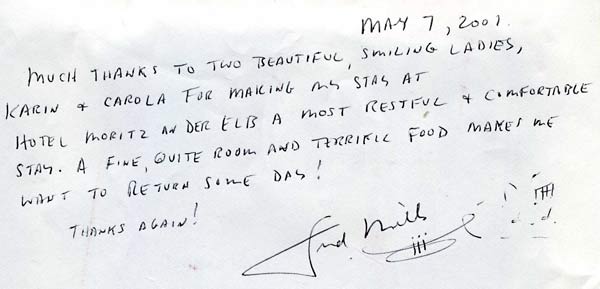 MAY 7, 2001.
MUCH THANKS TO TWO BEAUTIFUL, SMILING LADIES,
KARIN & CAROLA FOR MAKING MY STAY AT
HOTEL MORITZ AN DER ELB A MOST RESTFUL & COMFORTABLE
STAY. A FINE, QUITE ROOM AND TERRIFIC FOOD MAKES ME
WANT TO RETURN SOME DAY!
THANKS AGAIN!
Fred Mills